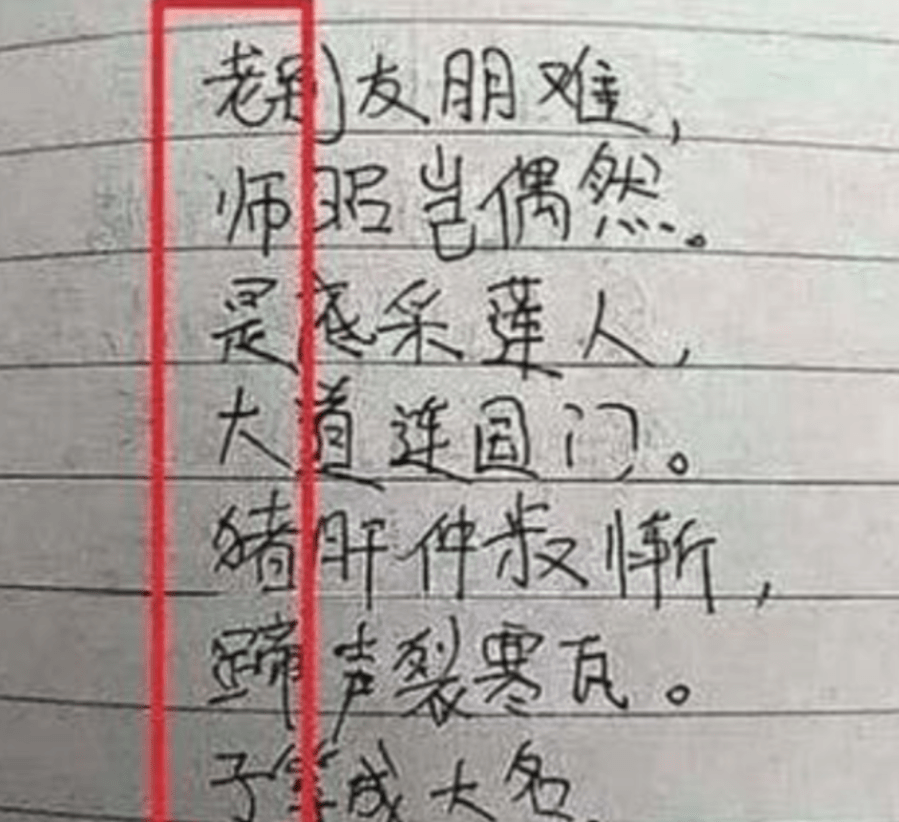 老别友朋难，
师昭岂偶然。
是底采莲人，
大道连国门。
猪肝仲叔惭，
蹄声裂寒瓦。
子等成大名